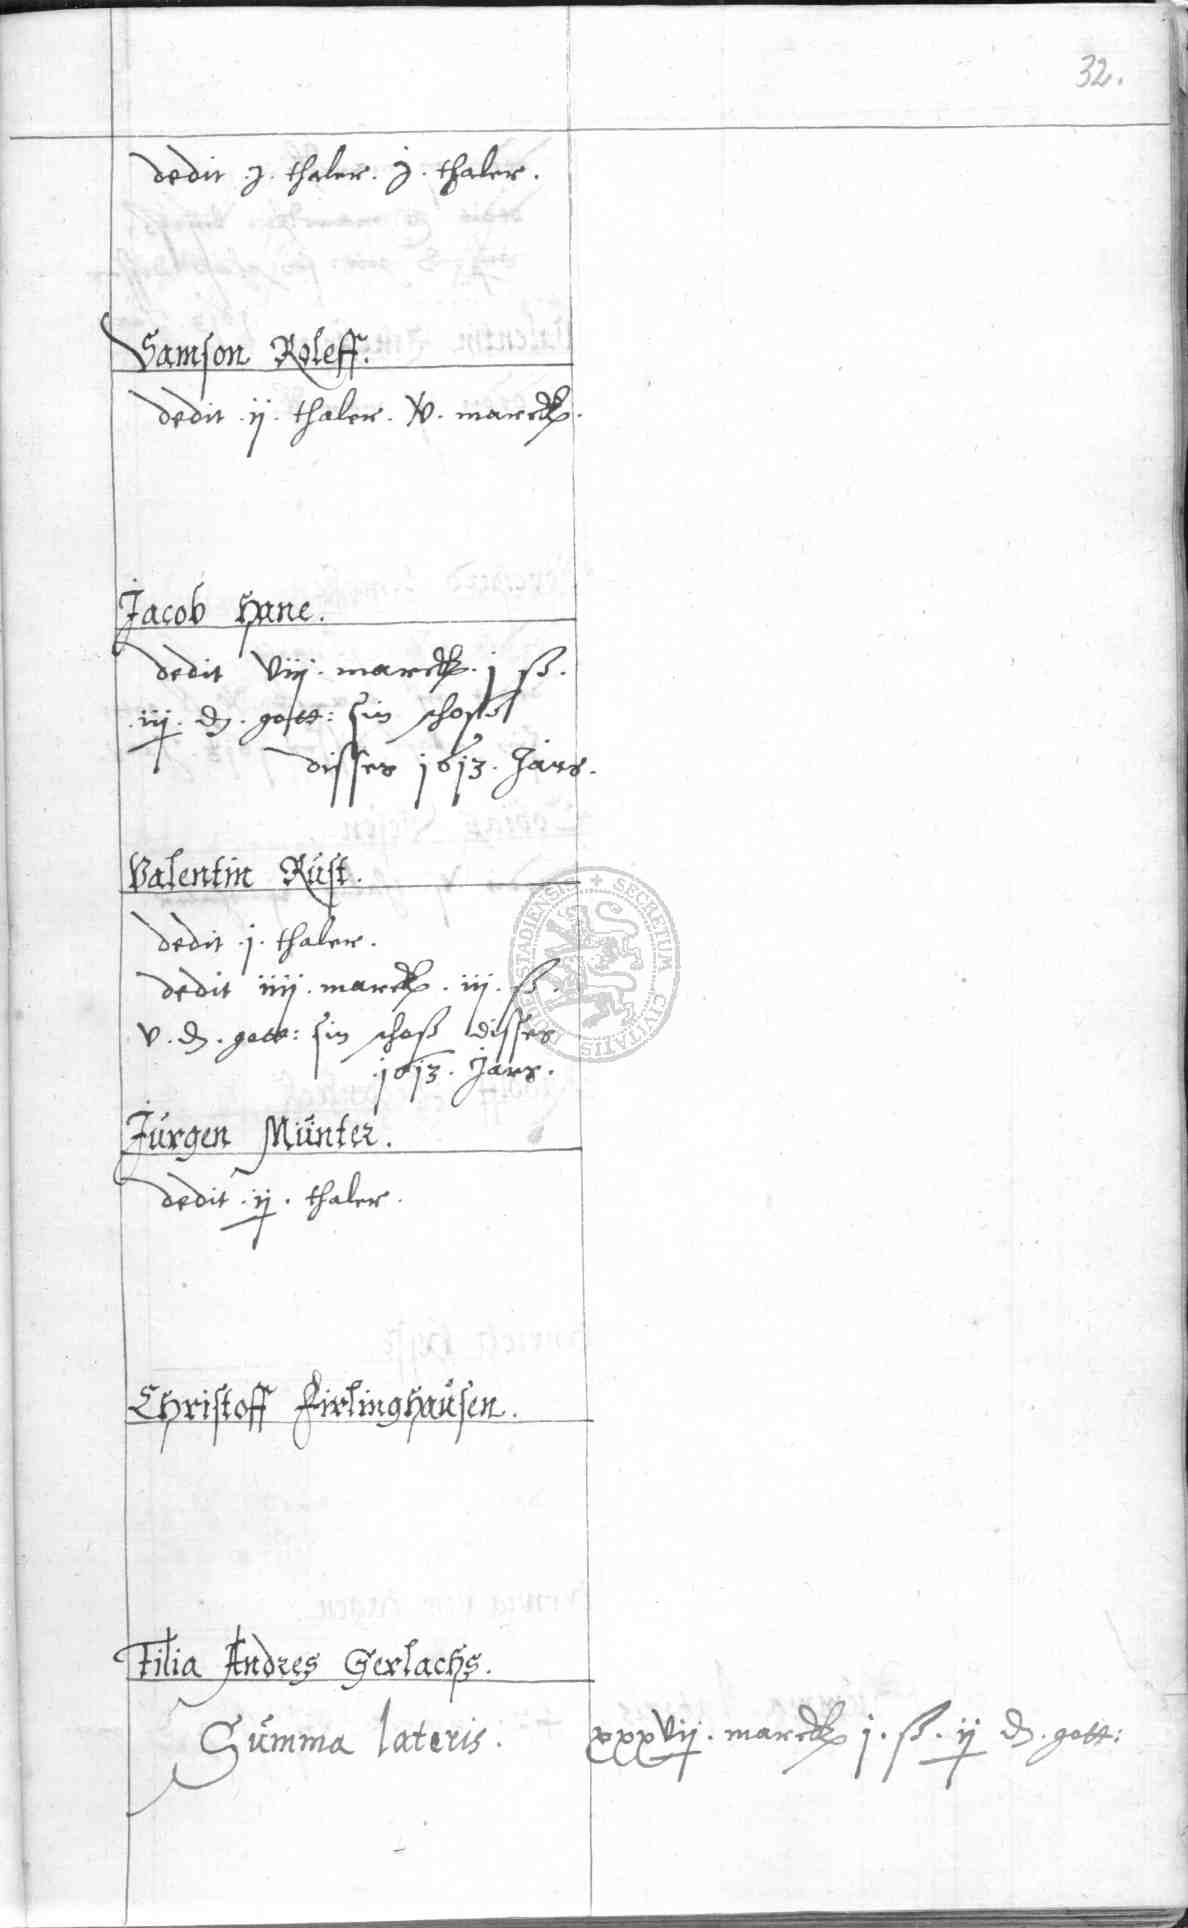 32.
dedit .j. thaler. j. thaler.
Samson Roleff.
dedit .ij. thaler. v. marck.
Jacob Hane.
dedit viij. marck. j ß.
iij. d. gott: sin schoß
disses 1613. Jars.
Valentin Rust.
dedit .j. thaler.
dedit iiij. marck. iij. ß.
v. d. gott: sin schoß disses
1613. Jars.
Jürgen Münter.
dedit .ij. thaler.
Christoff Firlinghausen.
Filia Andres Gerlachs.
Summa lateris. xxxvij. marck j. ß. ij d. gott:
SECRETUM CIVITATIS DUDERSTADIENSIS